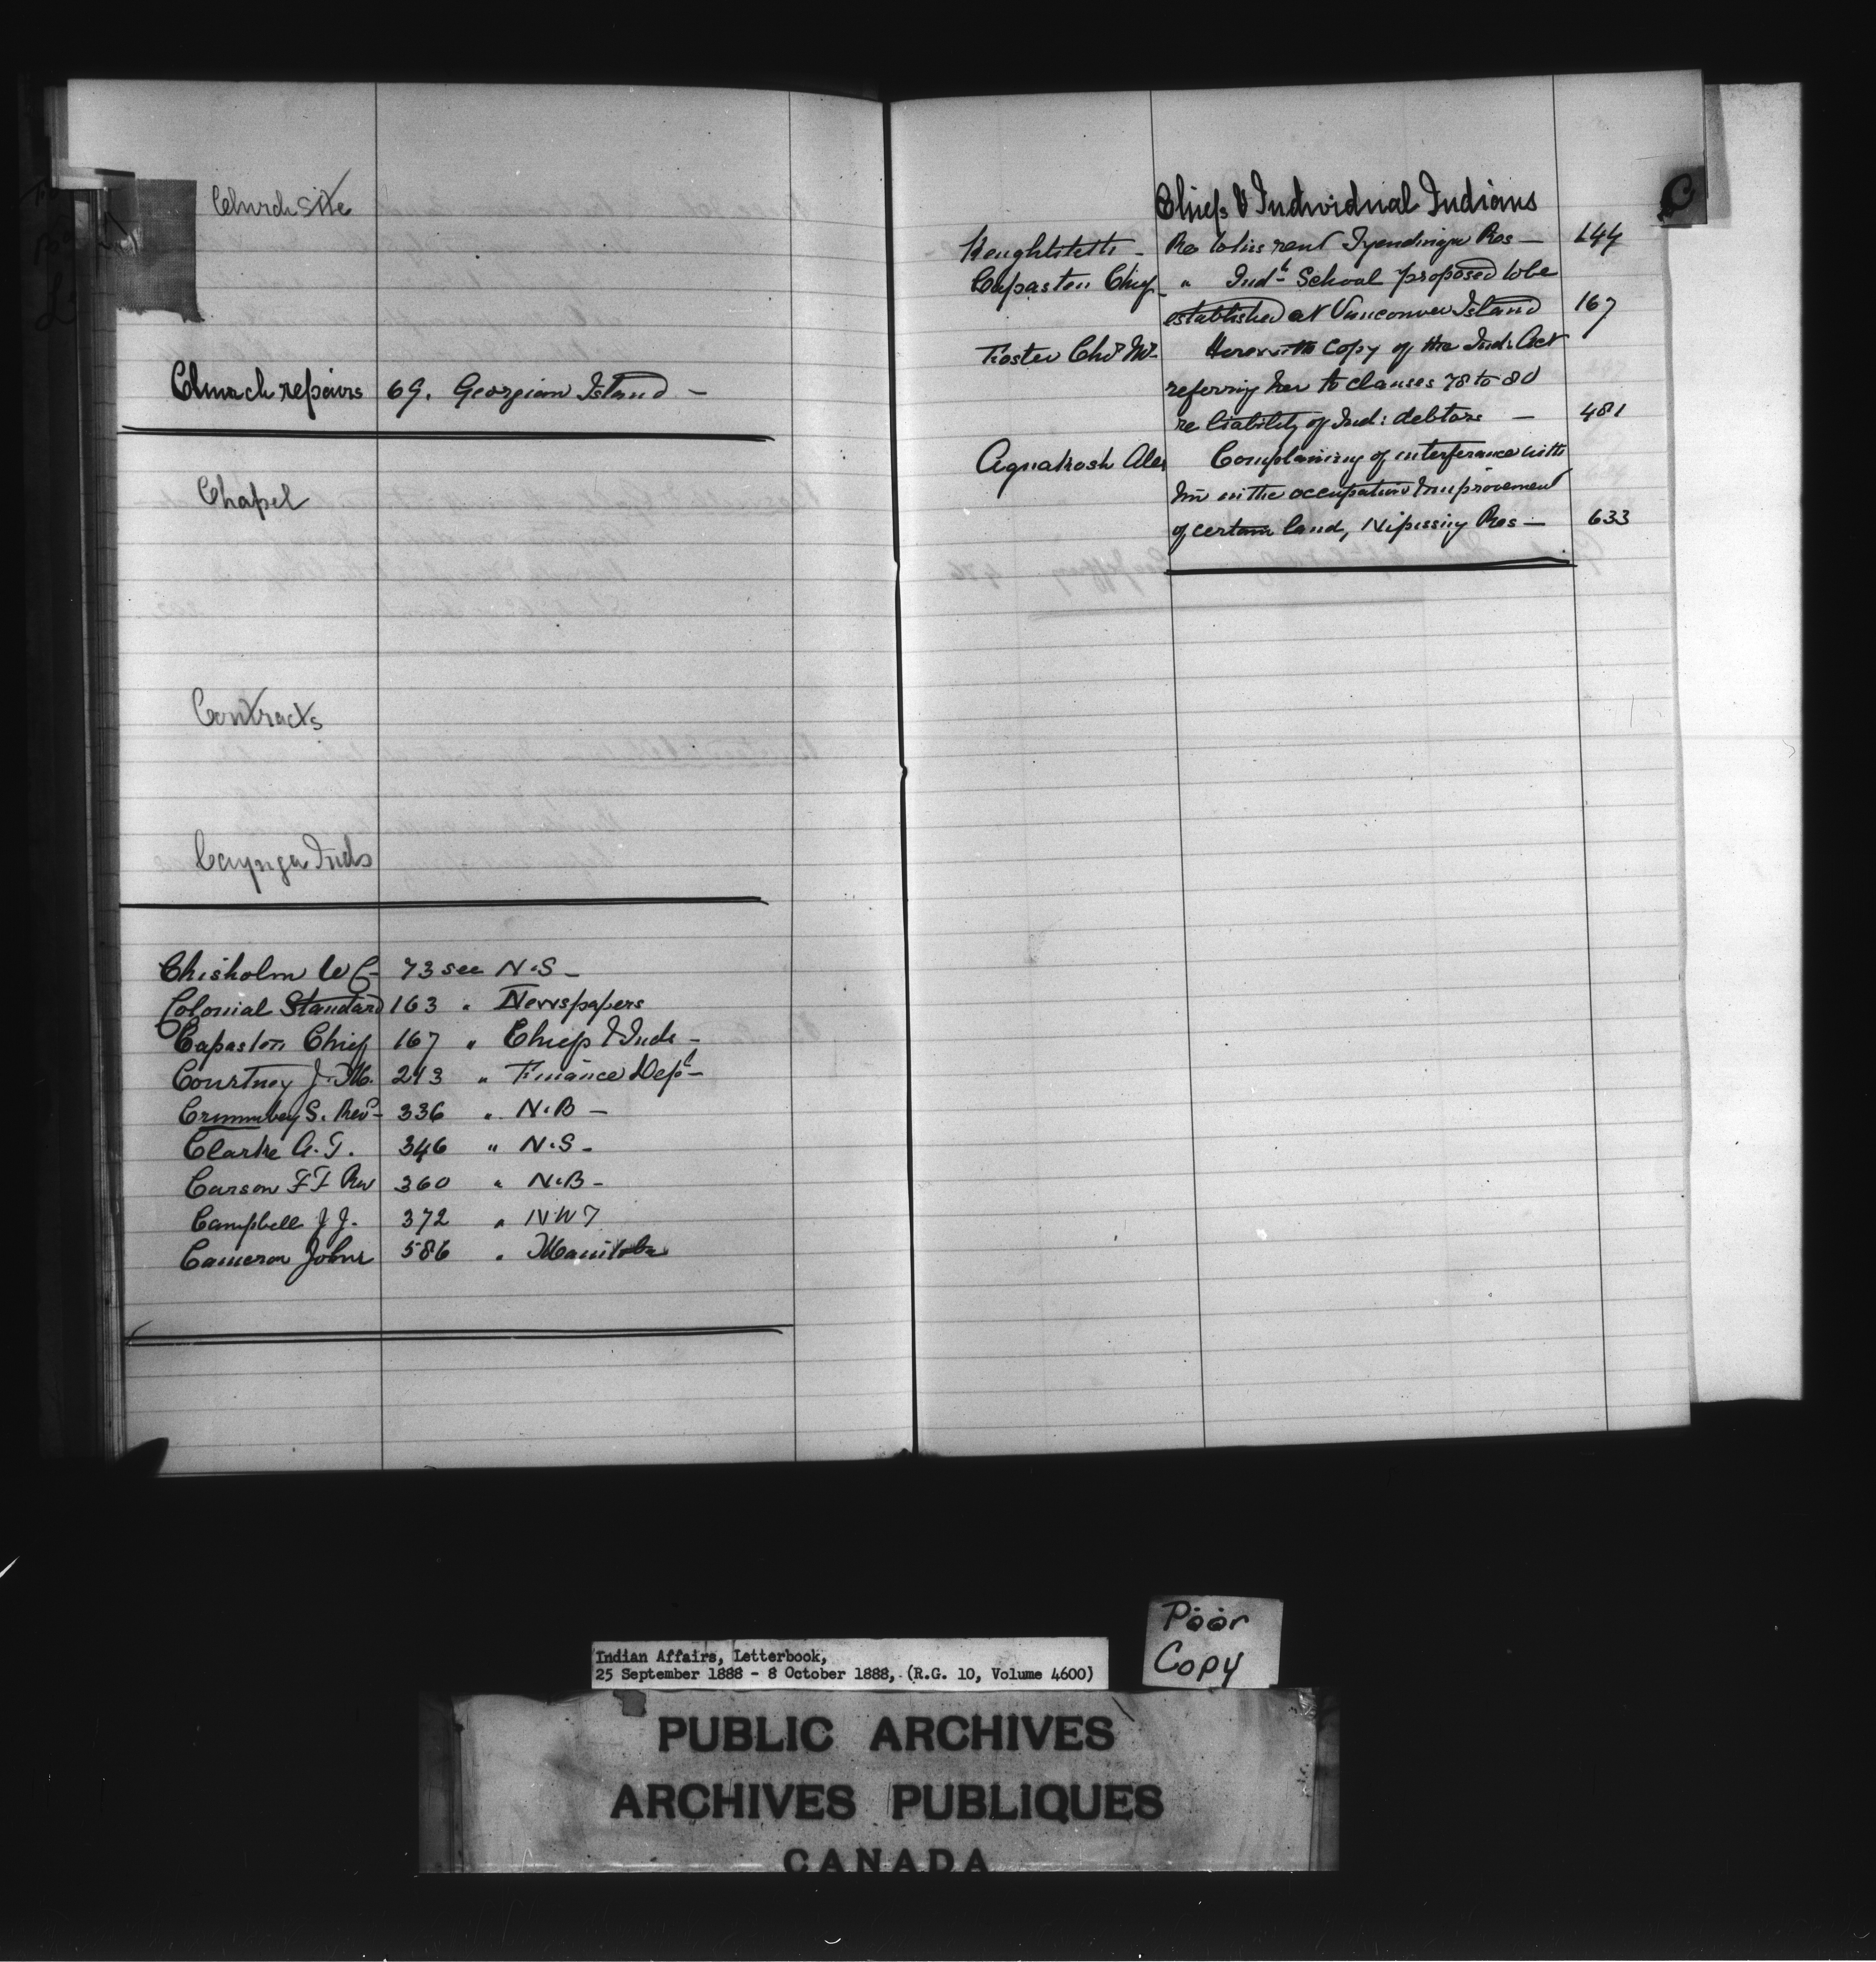 Church site
Church repairs 69. Georgian Island —
Chapel
Contracts
Cayuga Inds
Chisholm W C - 73 see N.S —
Colonial Standard 163 " Newspapers
Capaston Chief 167 " Chiefs & Inds -
Courtney J. M. 243 " Finance Dept -
S. Revd - 336 " N.B —
Clarke A. T. 346 " N.S -
Carson F F Rev 360 " N.B -
Campbell J J. 372 " N W T
Cameron John 586 " Manitoba
C
Chiefs & Individual Indians
Re to his rent Tyendinaga Res — 144
Capaston Chief - " Indl School proposed to be
established at Vancouver Island 167
Foster Chs Mrs Herewith copy of the Ind: Act
referring her to clauses 78 to 80
re liability of Ind: debtors — 481
Complaining of interference with
him in the occupation & improvement
of certain land, Nipissing Res — 633
Poor
Copy
Indian Affairs, Letterbook,
25 September 1888 - 8 October 1888, (R.G. 10, Volume 4600)
PUBLIC ARCHIVES
ARCHIVES PUBLIQUES
CANADA